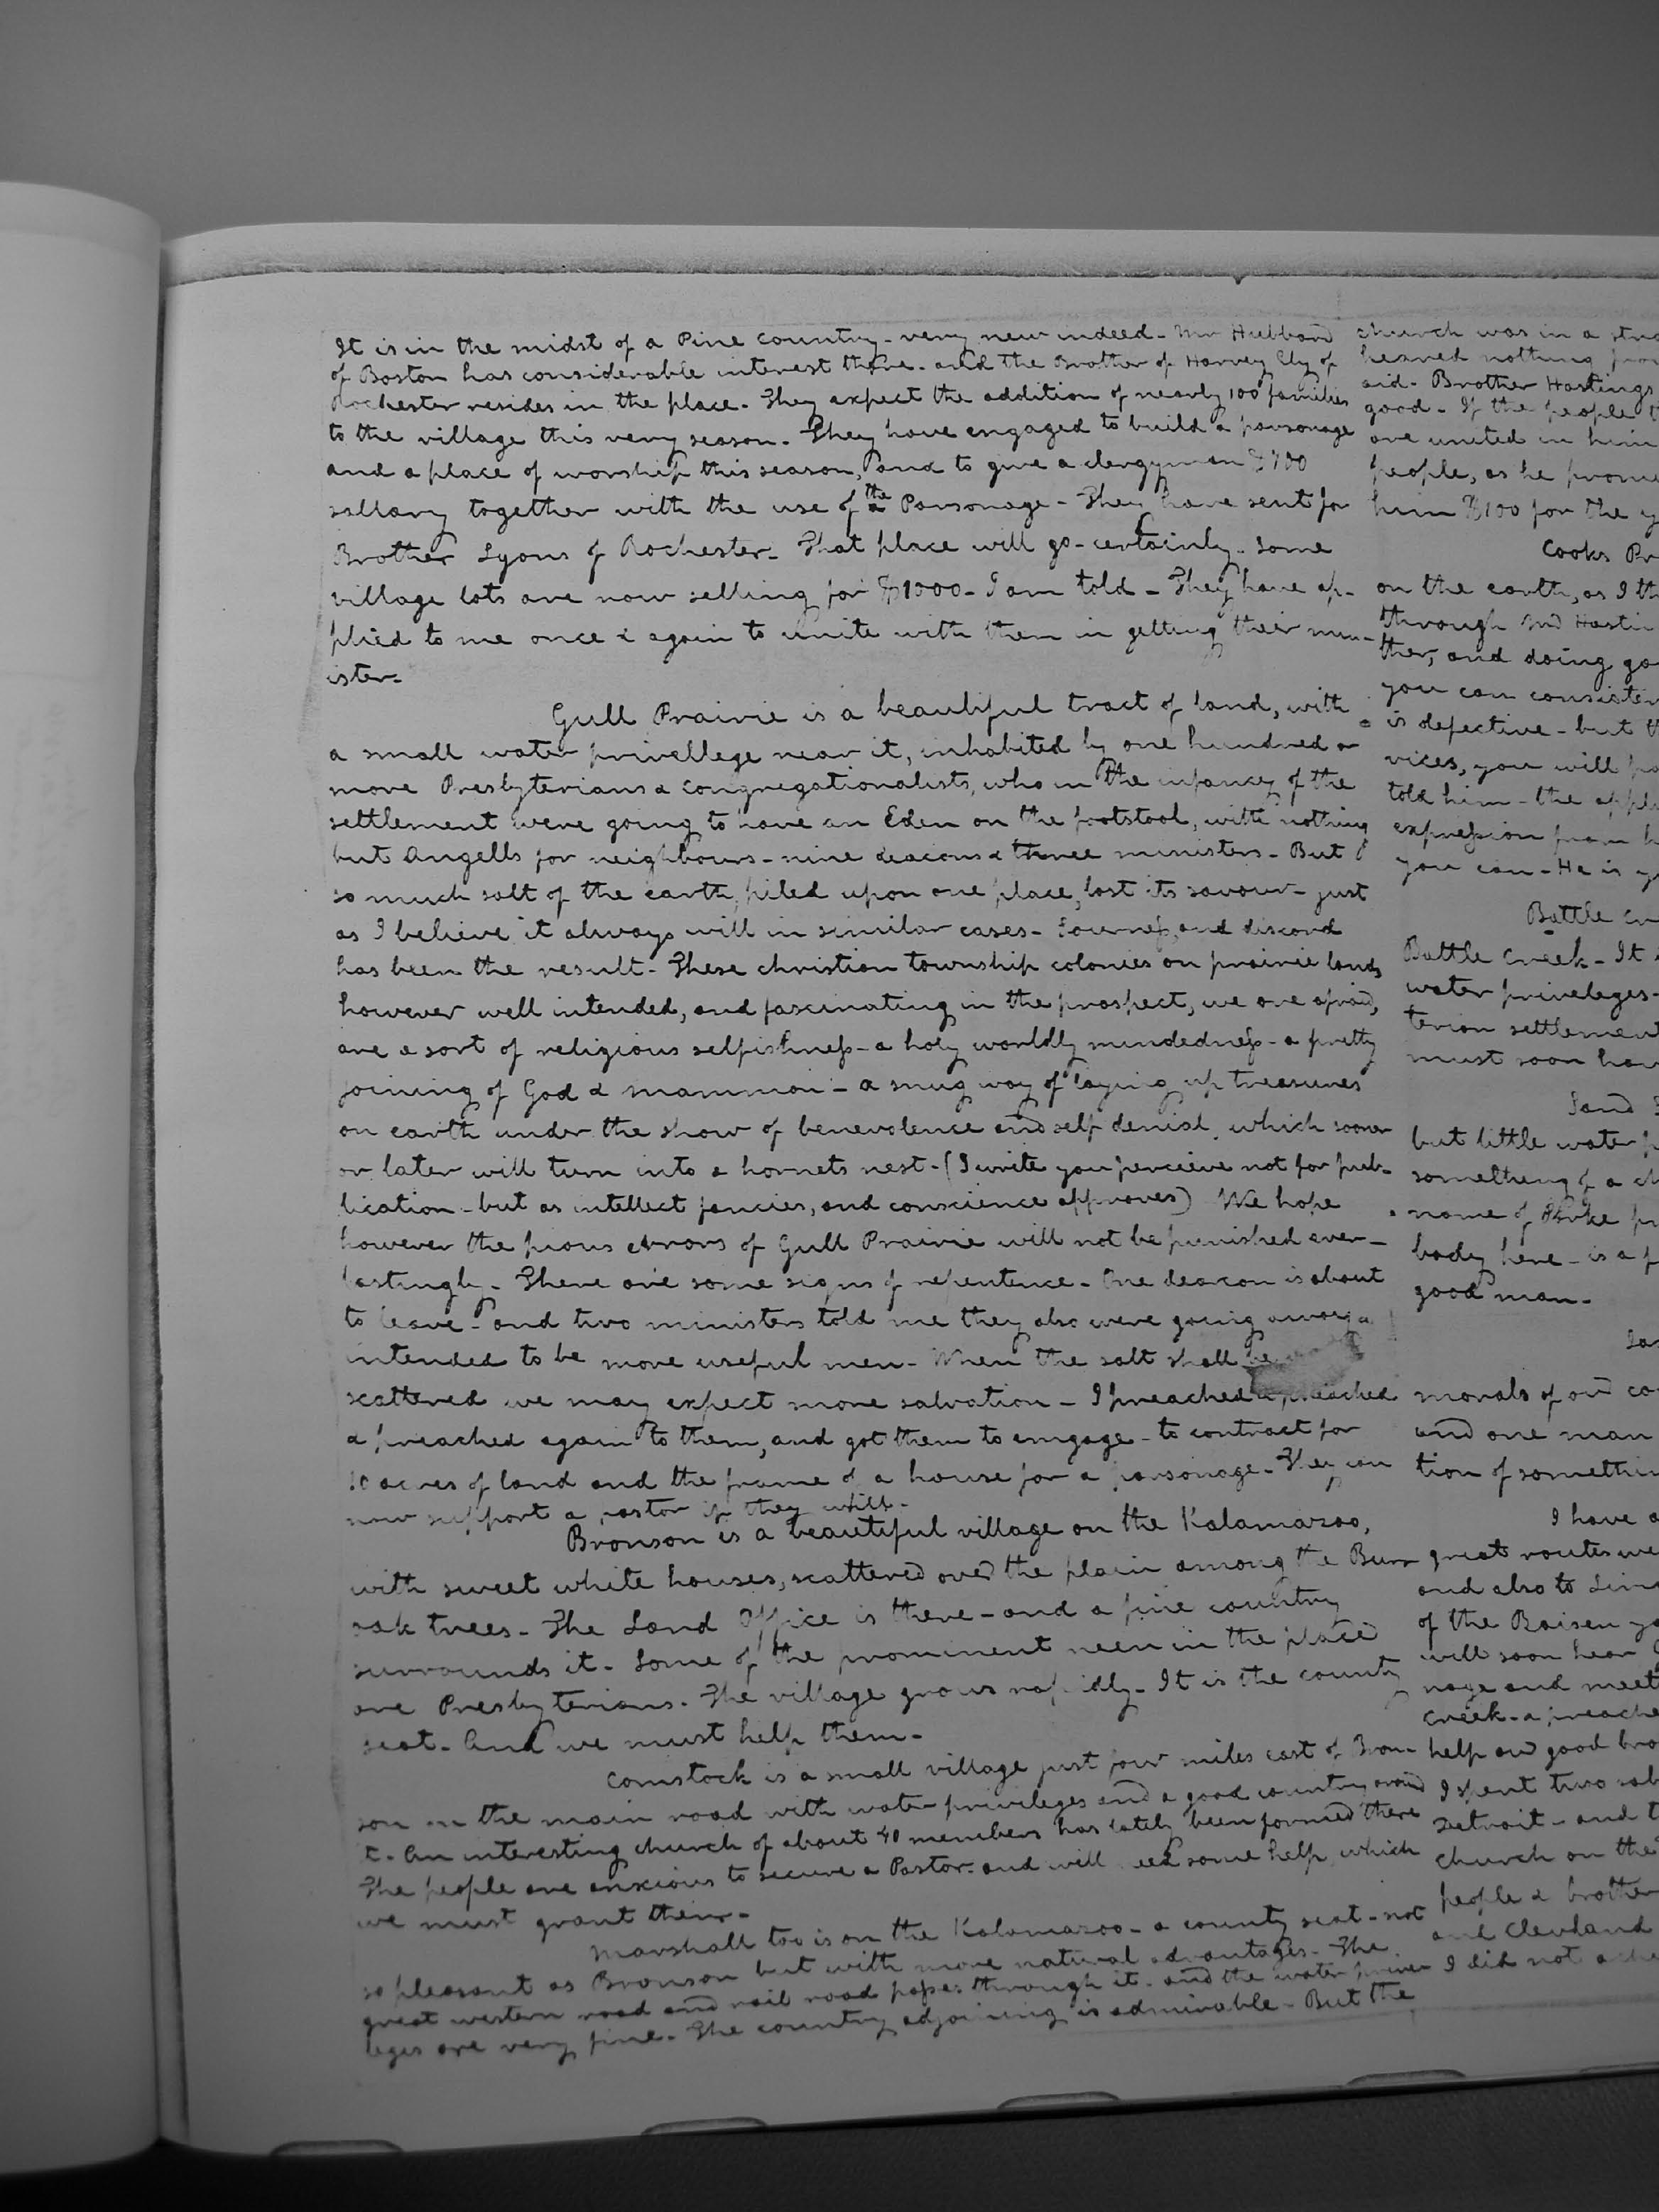 It is in the midst of a Pine Country - very new indeed - Mr Hubbard
of Boston has considerable interest there - and the Brother of Harvey Ely of
Rochester resides in the place - They expect the addition of nearly 100 families
to the village this very season - They have engaged to build a parsonage
and a place of worship this season, and to give a clergyman $700
sallary together with the use of the Parsonage - They have sent for
Brother Lyons of Rochester - That place will go - certainly - Some
village lots are now selling for $1000 - I am told - They have ap-
plied to me once & again to unite with them in getting their min-
ister -
Gull Prairie is a beautiful tract of land, with
a small water privellege near it, inhabited by one hundred or
more Presbyterians & Congregationalists, who in the infancy of the
settlement were going to have an Eden on the footstool, with nothing
but Angells for neighbours - nine deacons & three ministers - But
so much salt of the earth, piled upon one place, lost its savour - just
as I believe it always will in similar cases - Sourness, and discord
has been the result - These christian township colonies on prairie lands
however well intended, and fascinating in the prospect, we are afraid,
are a sort of religious selfishness - a holy worldly mindedness - a pretty
joining of God & mammon - a snug way of laying up treasures
on earth under the show of benevolence and self denial, which sooner
or later will turn into a hornets nest - (I write you perceive not for pub-
lication - but as intellect fancies, and conscience approves) We hope
however the pious errors of Gull Prairie will not be punished ever-
lastingly - There are some signs of repentence - One deacon is about
to leave - and two ministers told me they also were going away &
intended to be more useful men - When the salt shall be
scattered we may expect more salvation - I preached & preached
& preached again to them, and got them to engage - to contract for
10 acres of land and the frame of a house for a parsonage - They can
now support a pastor if they will -
Bronson is a beautiful village on the Kalamazoo,
with sweet white houses, scattered over the plain among the Burr
oak trees - The Land Office is there - and a fine country
surrounds it - Some of the prominent men in the place
are Presbyterians - The village grows rapidly - It is the county
seat - And we must help them -
Comstock is a small village just four miles east of Bron-
son on the main road with water privileges and a good country around
t - An interesting church of about 40 members has lately been formed there
The people are anxious to secure a Pastor - and will eed some help which
we must grant them -
Marshall too is on the Kalamazoo - a county seat - not
so pleasant as Bronson but with more natural advantages - The
great western road and rail road passes through it - and the water prive-
leges are very fine - The country adjoining is admirable - But the
church was in a
heared nothing
aid - Brother Hastings
good - If the people
are united in him
people, as he
him $100 for the
Cooks
on the earth, as I
through
ther, and doing
you can
is defective - but
vices, you will
told him - the
expression from
you can - He is
Battle
Battle Creek - It
water priveleges -
terian settlement
must soon
Sand
but little water
something of a
name of
body here - is a
good man -
morals of our
and one man
tion of
I have
great routes
and also to
of the Raisen
will soon hear
nage and meet
Creek - a
help our good
I spent two
Detroit - and
church on the
people & brother
and Clevland
I did not